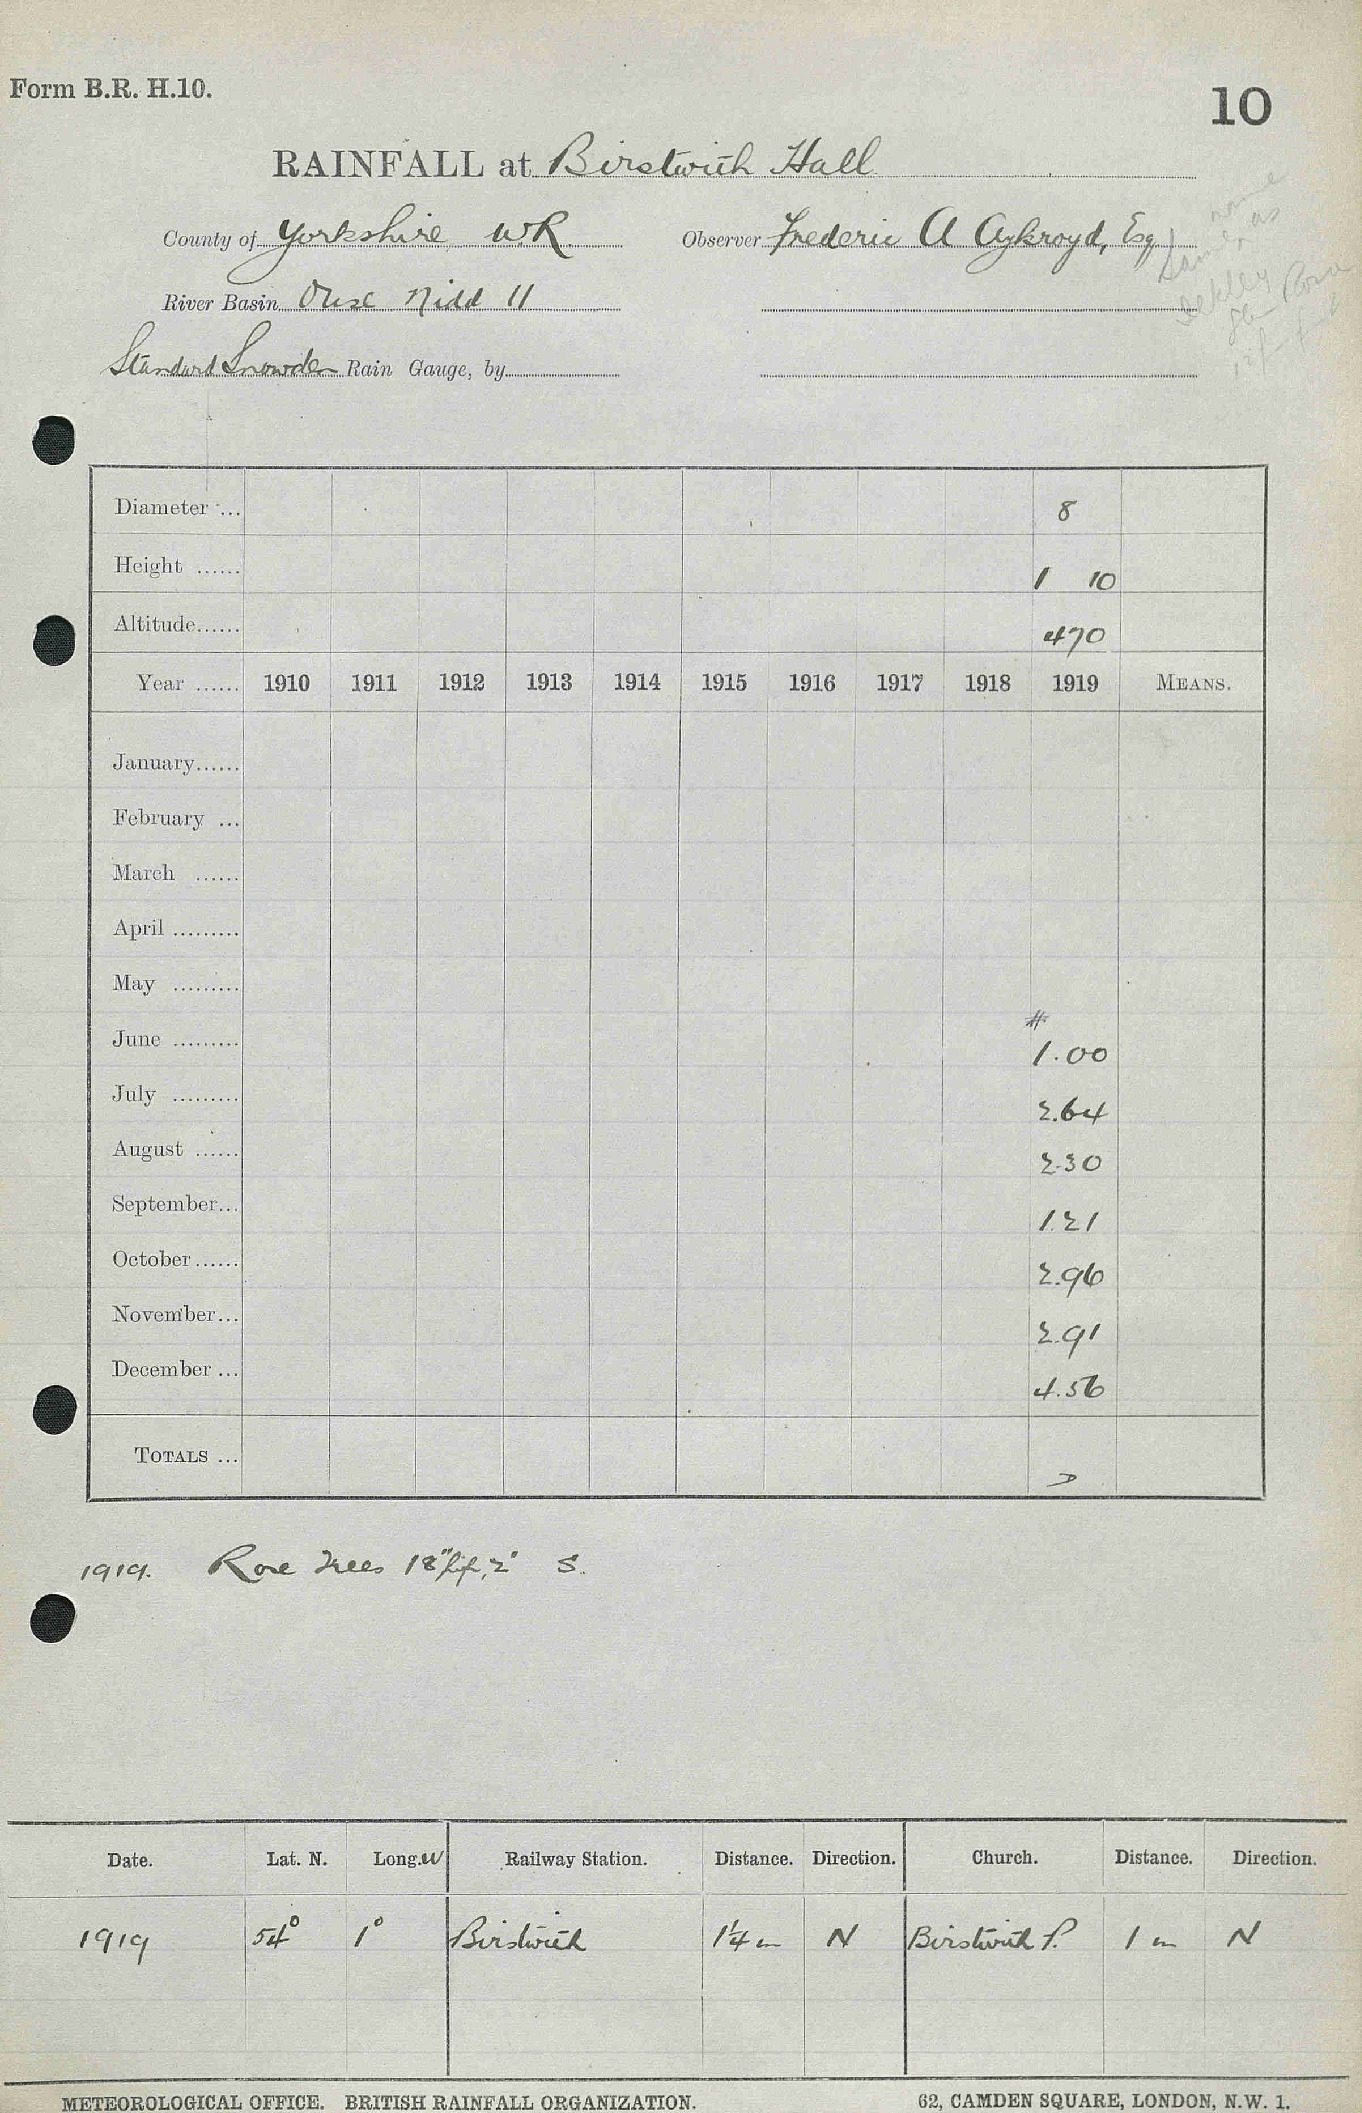 Form B.R. H.10.
10
RAINFALL at Birstwith Hall
County of Yorkshire W.R. Observer Frederic A Aykroyd, Esq
same name as
River Basin Ouse Nidd 11
Standard Snowdon Rain Gauge, by
Diameter ... 8
Height ...... 1 10
Altitude...... 470
Year ...... 1910 1911 1912 1913 1914 1915 1916 1917 1918 1919 MEANS.
January......
February ...
March ......
April .........
May .........
#
June ......... 1.00
July ......... 2.64
August ...... 2.30
September... 1.21
October...... 2.96
November... 2.91
December ... 4.56
TOTALS ...
1919. Rose Trees 18" high, 2' S.
Date. Lat. N. Long. W Railway Station. Distance. Direction. Church. Distance. Direction.
1919 54° 1° Birstwith 1¼ m N Birstwith P. 1 m N
METEOROLOGICAL OFFICE. BRITISH RAINFALL ORGANIZATION. 62, CAMDEN SQUARE, LONDON, N.W. 1.